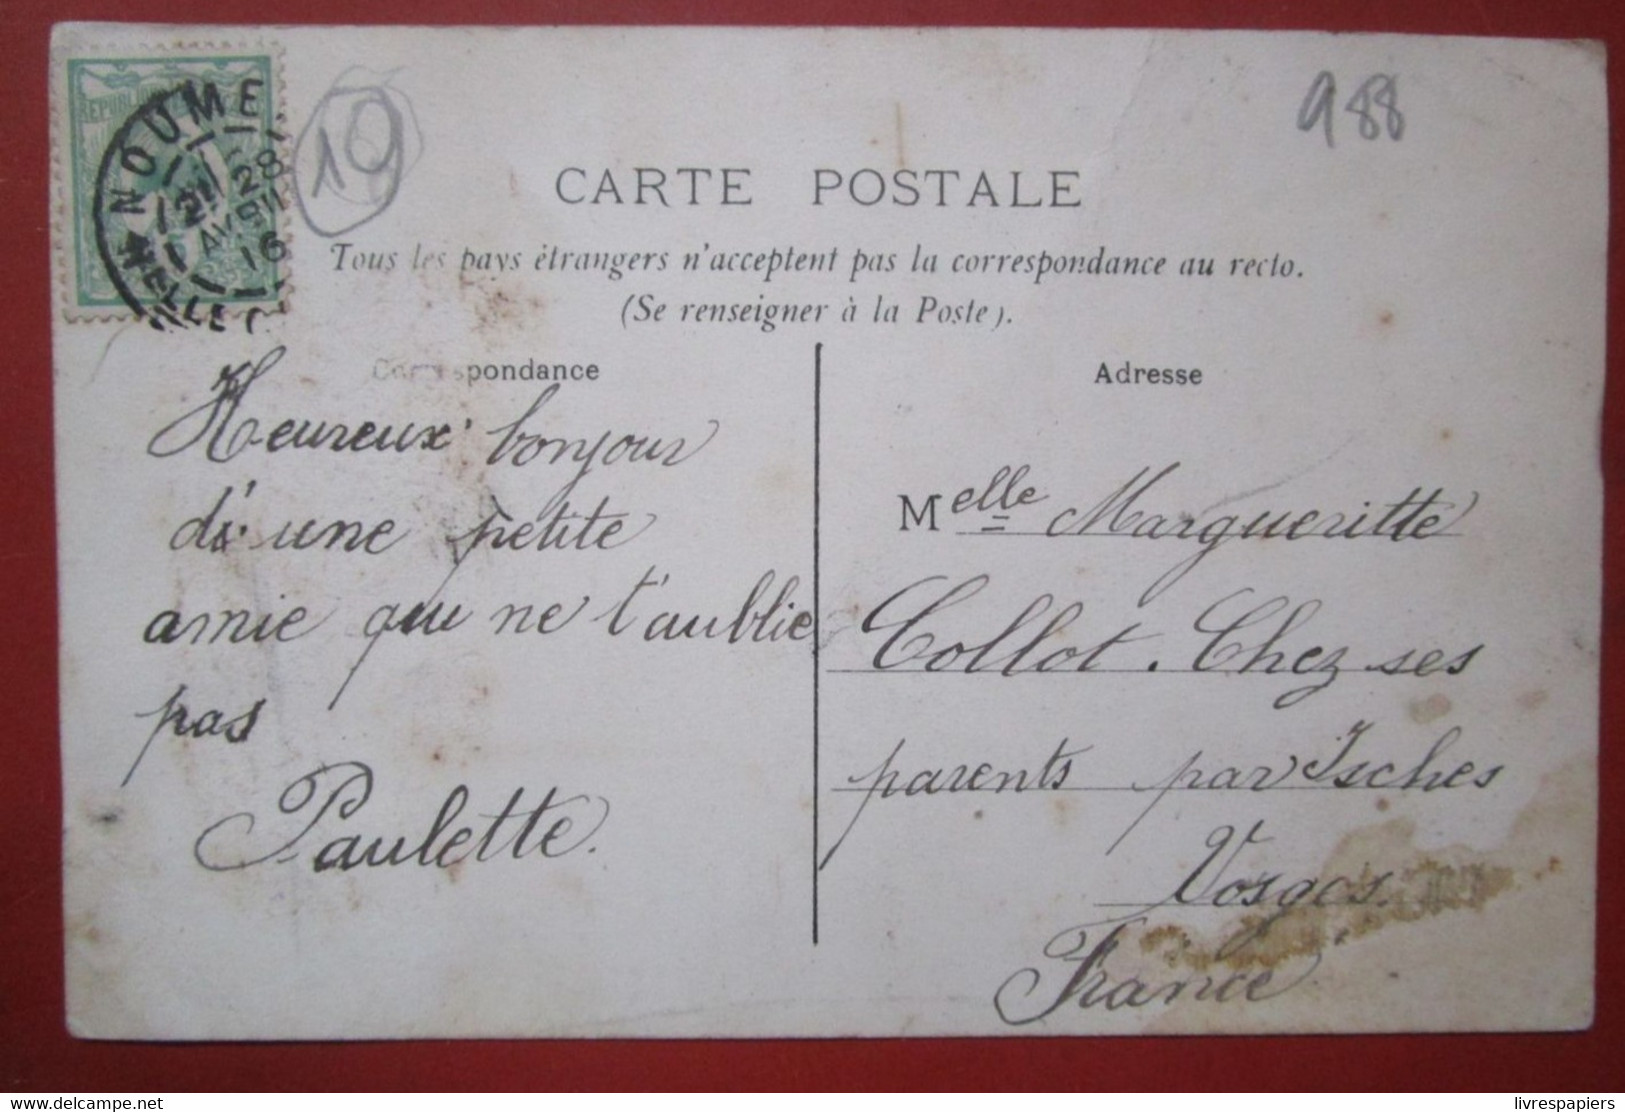 NOUMEA
28
AVRIL
16
NELLE C
19
988
CARTE POSTALE
Tous les pays étrangers n'acceptent pas la correspondance au recto.
(Se renseigner à la Poste).
Correspondance
Heureux bonjour
d'une petite
amie qui ne t'aublie
pas
Paulette.
Adresse
Melle Margueritte
Collot. Chez ses
parents par Isches
Vosges.
France
livrespapiers